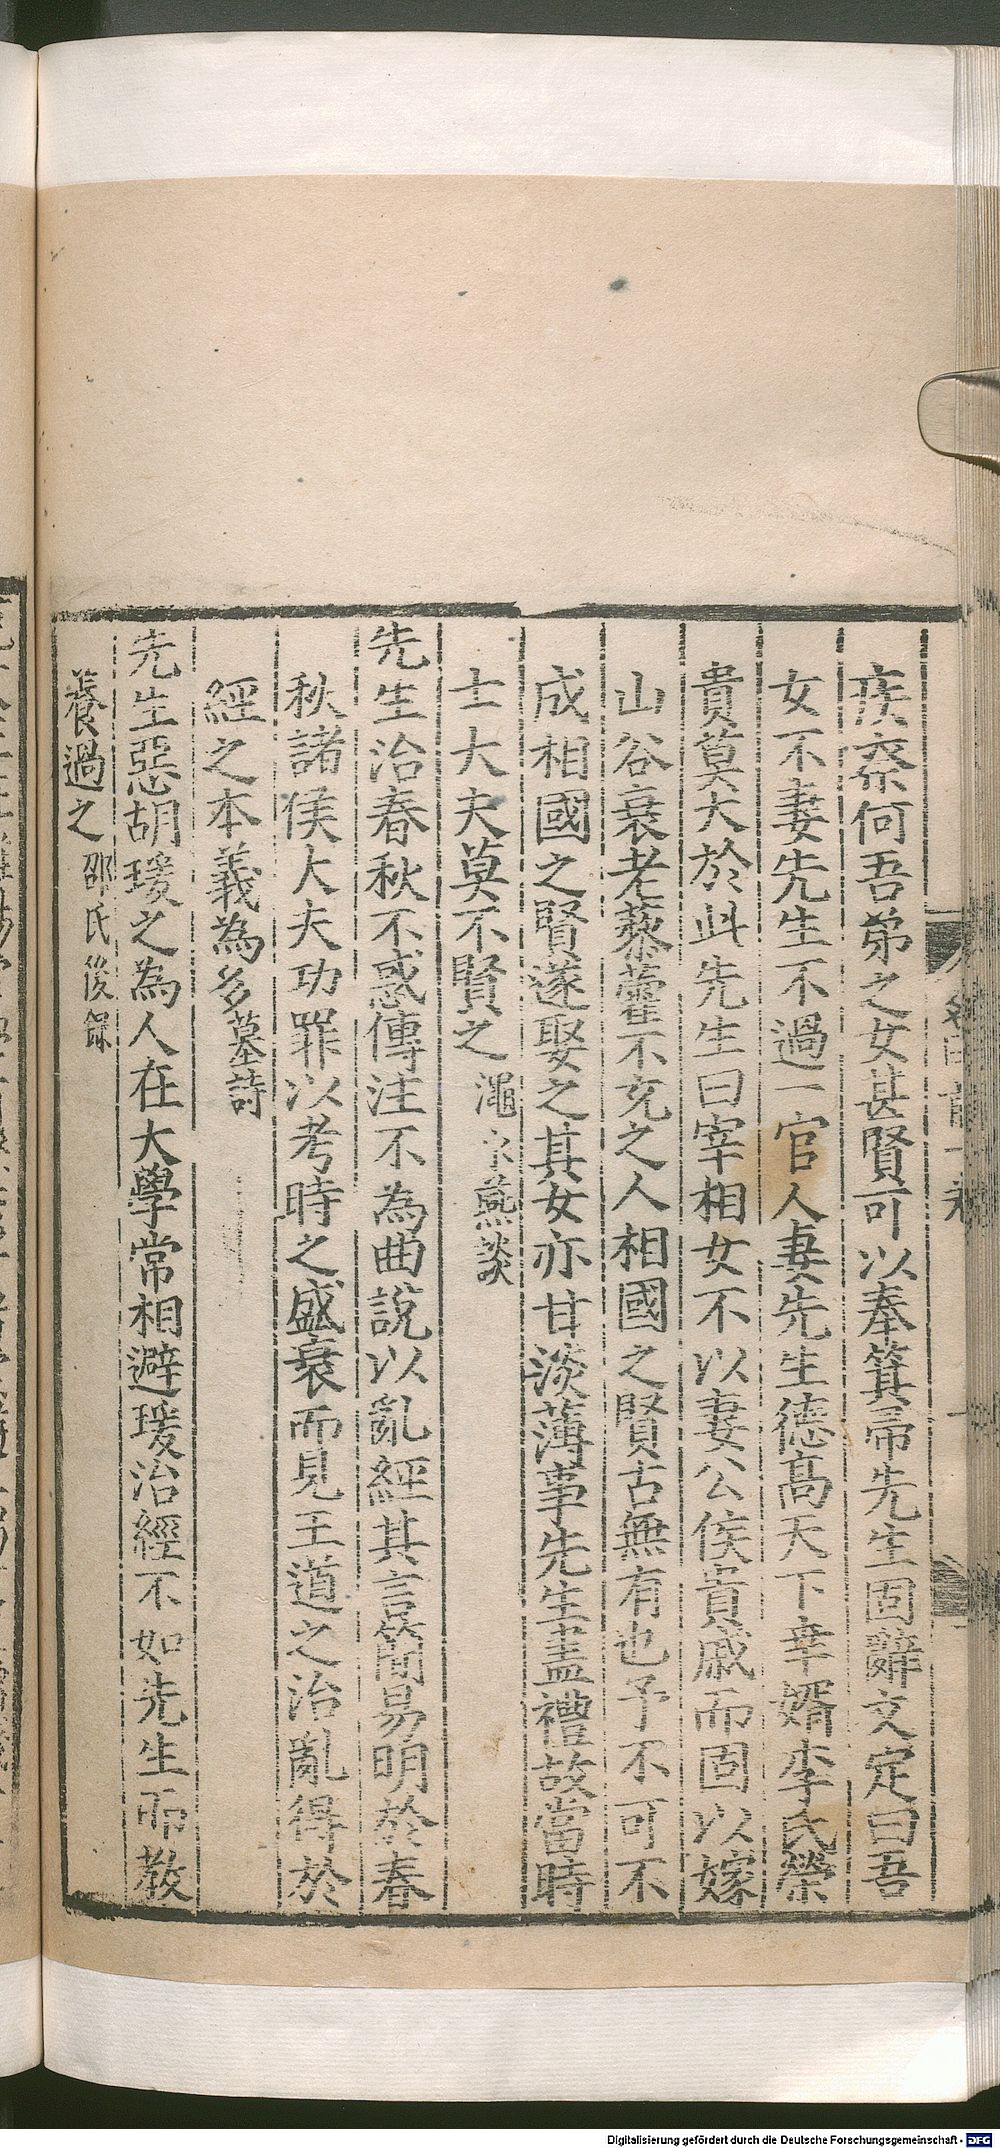 疾柰何吾弟之女甚賢可以奉箕帚先生固辭文定曰吾
女不妻先生不過一官人妻先生德高天下幸婿李氏榮
貴莫大於此先生曰宰相女不以妻公侯貴戚而固以嫁
山谷衰老藜藿不充之人相國之賢古無有也予不可不
成相國之賢遂娶之其女亦甘淡薄事先生盡禮故當時
士大夫莫不賢之 澠水燕談
先生治春秋不惑傳注不為曲說以亂經其言簡易明於春
秋諸侯大夫功罪以考時之盛衰而見王道之治亂得於
經之本義為多 墓誌
先生惡胡瑗之為人在大學常相避瑗治經不如先生而教
養過之 邵氏後錄
Digitalisierung gefördert durch die Deutsche Forschungsgemeinschaft - DFG